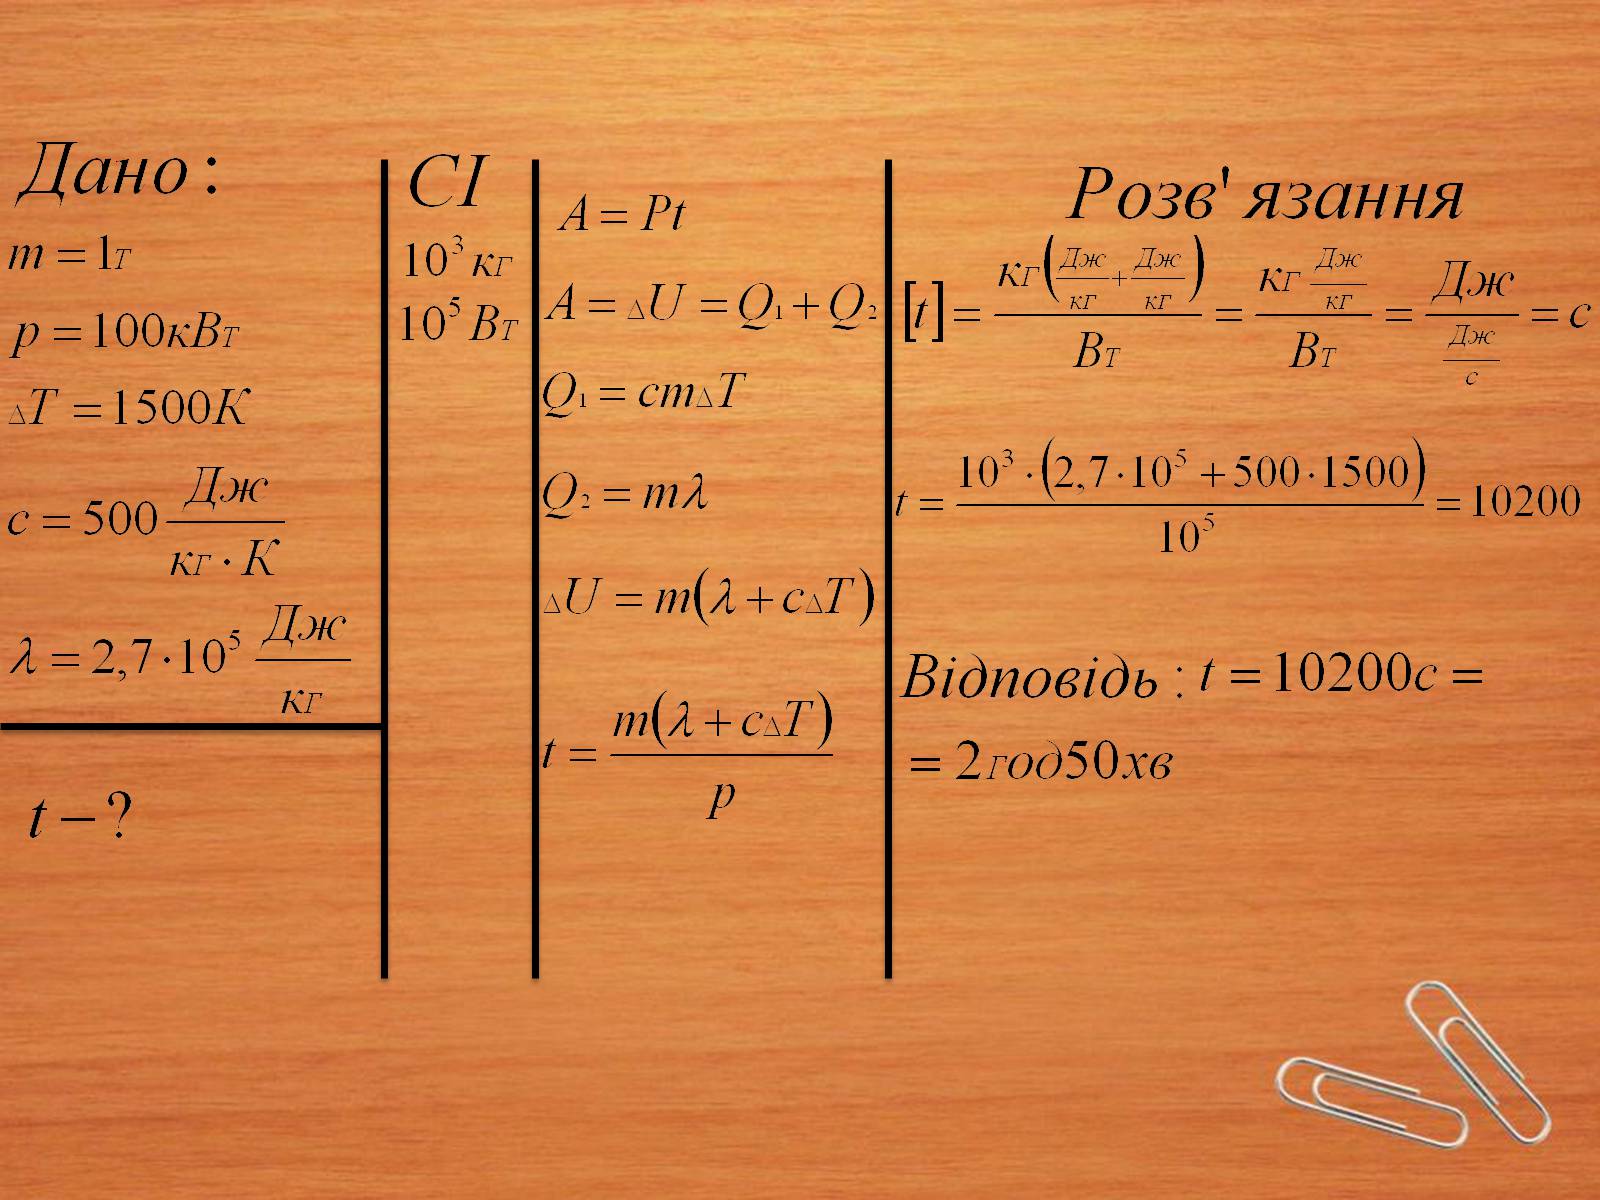 Дано :
m = 1т
p = 100кВт
△T = 1500К
c = 500 Дж/(кг · К)
λ = 2,7 · 10⁵ Дж/кг
t − ?
СІ
10³ кг
10⁵ Вт
A = Pt
A = △U = Q₁ + Q₂
Q₁ = cm△T
Q₂ = mλ
△U = m(λ + c△T)
t = m(λ + c△T)/p
Розв' язання
[t] = кг(Дж/кг + Дж/кг)/Вт = кг Дж/кг/Вт = Дж/(Дж/с) = с
t = 10³ · (2,7 · 10⁵ + 500 · 1500)/10⁵ = 10200
Відповідь : t = 10200с =
= 2год50хв